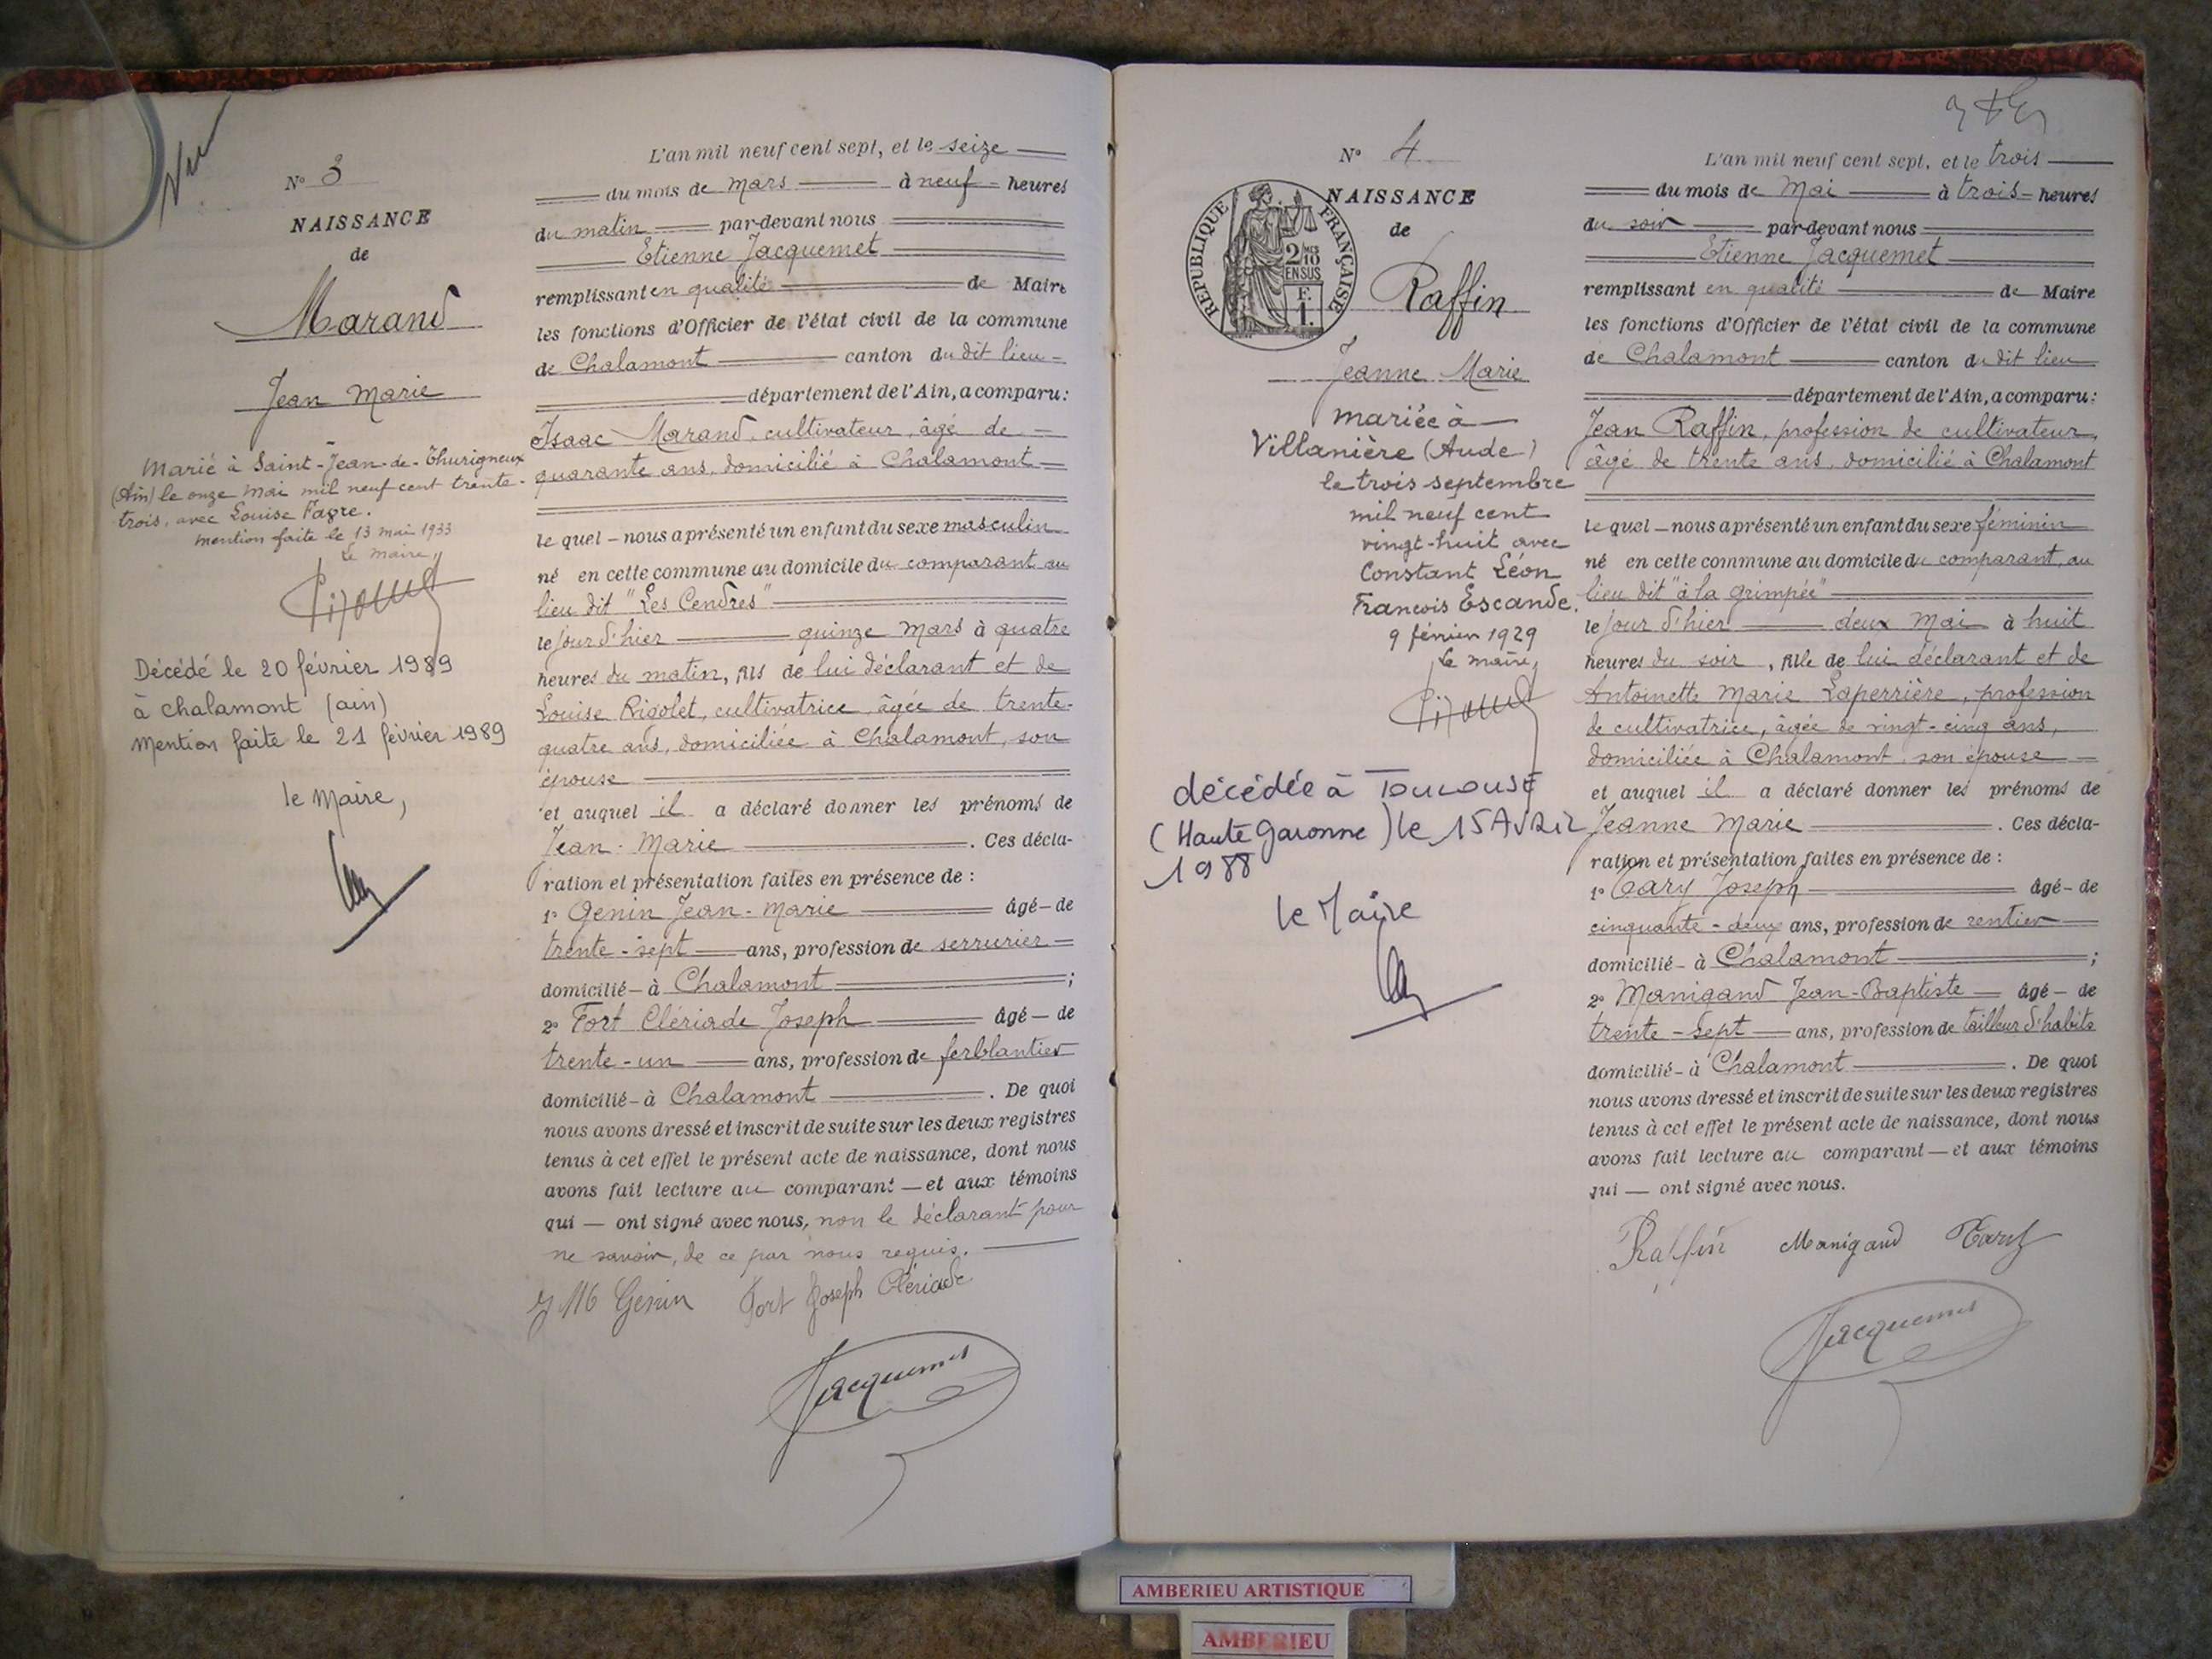 Vu
N° 3
NAISSANCE
de
Marand
Jean Marie
Marié à Saint-Jean-de-Thurigneux
(Ain) le onze mai mil neuf cent trente-
trois, avec Louise Favre.
mention faite le 13 mai 1933
Le maire,
Décédé le 20 février 1989
à chalamont (ain)
Mention faite le 21 février 1989
le Maire,
L'an mil neuf cent sept, et le seize
du mois de mars à neuf heures
du matin par-devant nous
Etienne Jacquemet
remplissant en qualité de Maire
les fonctions d'Officier de l'état civil de la commune
de Chalamont canton du dit lieu
département de l'Ain, a comparu:
Isaac Marand, cultivateur, âgé de
quarante ans, domicilié à Chalamont
le quel nous a présenté un enfant du sexe masculin
né en cette commune au domicile du comparant au
lieu dit "Les Cendres"
le jour d'hier quinze Mars à quatre
heures du matin, fils de lui déclarant et de
Louise Rigolet, cultivatrice, âgée de trente-
quatre ans, domiciliée à Chalamont, son
épouse
et auquel il a déclaré donner les prénoms de
Jean-Marie. Ces décla-
ration et présentation faites en présence de :
1° Genin Jean-Marie âgé de
trente-sept ans, profession de serrurier
domicilié à Chalamont ;
2° Fort Clériade Joseph âgé de
trente-un ans, profession de ferblantier
domicilié à Chalamont. De quoi
nous avons dressé et inscrit de suite sur les deux registres
tenus à cet effet le présent acte de naissance, dont nous
avons fait lecture au comparant et aux témoins
qui ont signé avec nous, non le déclarant pour
ne savoir, de ce par nous requis.
J M Genin Fort Joseph Clériade
Jacquemet
N° 4
NAISSANCE
de
REPUBLIQUE FRANÇAISE
2/10 EN SUS
F. 1.
Raffin
Jeanne Marie
mariée à
Villanière (Aude)
le trois septembre
mil neuf cent
vingt-huit avec
Constant Léon
François Escande.
9 février 1929
Le maire,
décédée à Toulouse
(Haute Garonne) le 15 Avril
1988
le Maire
L'an mil neuf cent sept, et le trois
du mois de Mai à trois heures
du soir par-devant nous
Etienne Jacquemet
remplissant en qualité de Maire
les fonctions d'Officier de l'état civil de la commune
de Chalamont canton du dit lieu
département de l'Ain, a comparu:
Jean Raffin, profession de cultivateur,
âgé de trente ans, domicilié à Chalamont
le quel nous a présenté un enfant du sexe féminin
né en cette commune au domicile du comparant, au
lieu dit "à la grimpée"
le jour d'hier deux Mai à huit
heures du soir, fille de lui déclarant et de
Antoinette Marie Laperrière, profession
de cultivatrice, âgée de vingt-cinq ans,
domiciliée à Chalamont, son épouse
et auquel il a déclaré donner les prénoms de
Jeanne Marie. Ces décla-
ration et présentation faites en présence de :
1° Cary Joseph âgé de
cinquante-deux ans, profession de rentier
domicilié à Chalamont ;
2° Manigand Jean-Baptiste âgé de
trente-sept ans, profession de tailleur d'habits
domicilié à Chalamont. De quoi
nous avons dressé et inscrit de suite sur les deux registres
tenus à cet effet le présent acte de naissance, dont nous
avons fait lecture au comparant et aux témoins
qui ont signé avec nous.
Raffin Manigand Cary
Jacquemet
AMBERIEU ARTISTIQUE
AMBERIEU